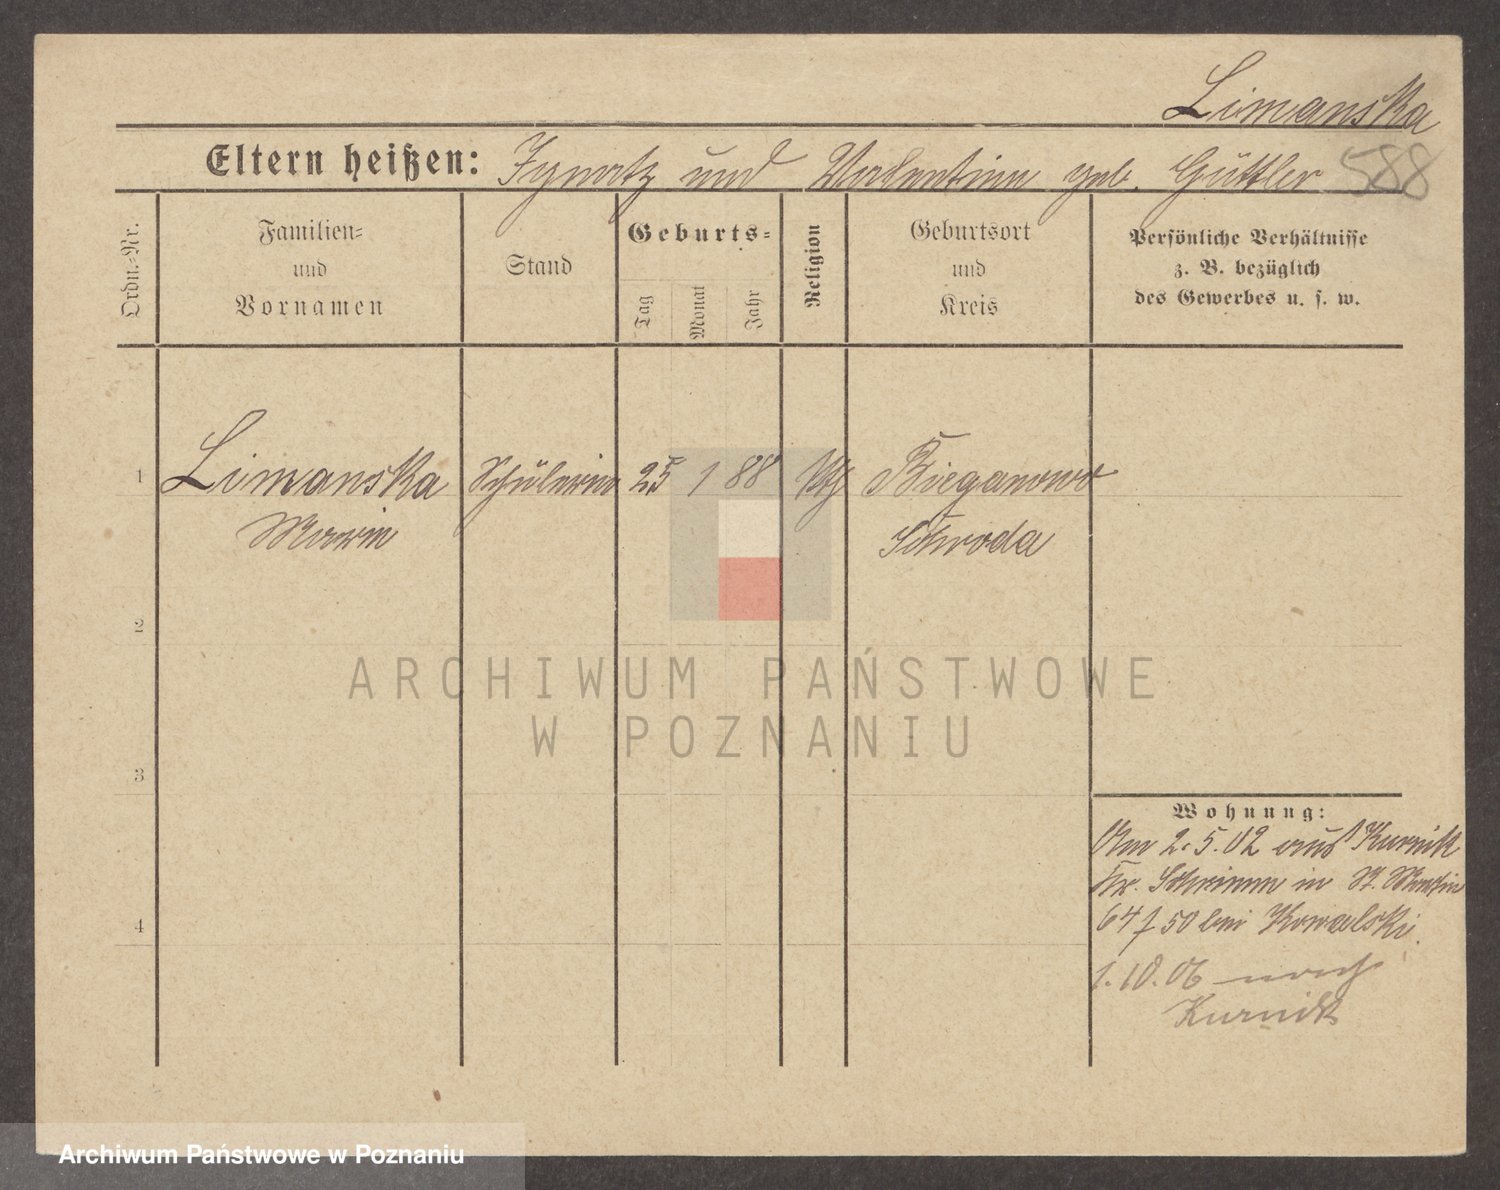 Limanska
Eltern heißen: Ignatz und Valentine geb. Güttler 588
Ordn.-Nr.
Familien-
und
Vornamen
Stand
Geburts-
Tag
Monat
Jahr
Religion
Geburtsort
und
Kreis
Persönliche Verhältnisse
z. B. bezüglich
des Gewerbes u. s. w.
1 Limanska Schülerin 25 1 88 Bieganowo
Marie Schroda
2
3
4
Wohnung:
Am 2.5.02 aus Kurnik
Kr. Schrimm in St. Martin
64 f 50 bei Kowalski.
1.10.06 nach
Kurnik
ARCHIWUM PAŃSTWOWE
W POZNANIU
Archiwum Państwowe w Poznaniu